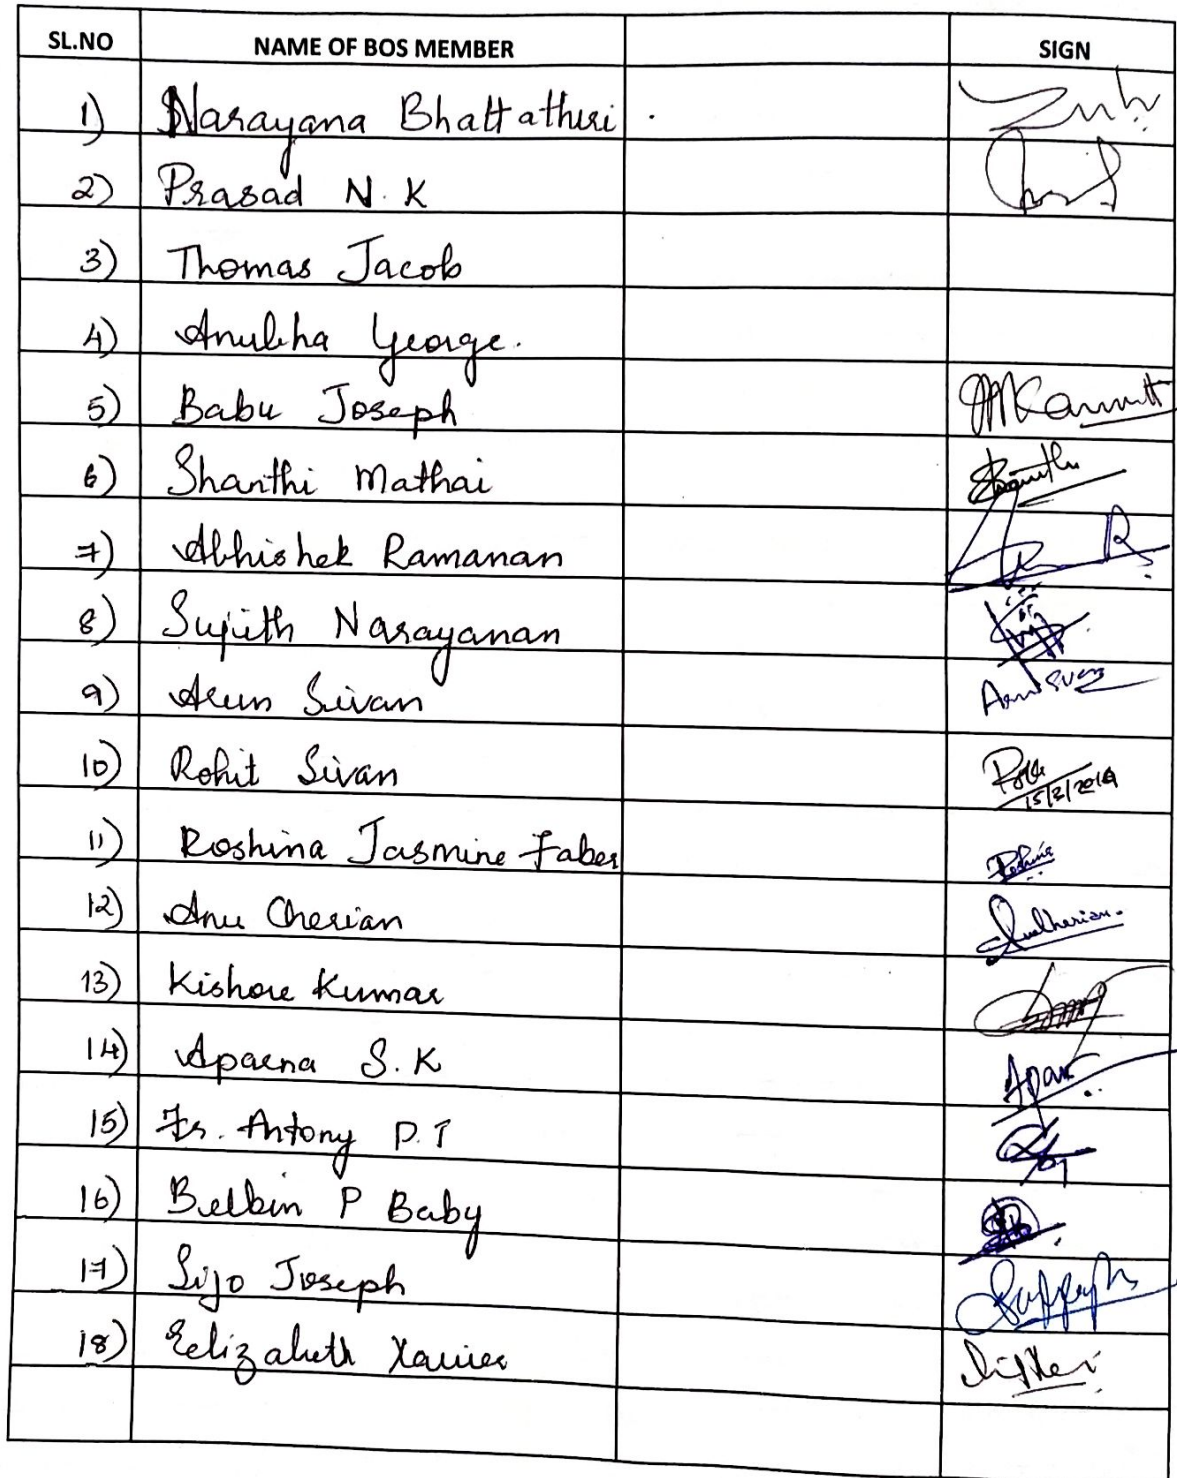 SL.NO NAME OF BOS MEMBER SIGN
1) Narayana Bhattathiri
2) Prasad N.K
3) Thomas Jacob
4) Anubha George.
5) Babu Joseph
6) Shanthi Mathai
7) Abhishek Ramanan
8) Sujith Narayanan
9) Arun Sivan
10) Rohit Sivan 15/3/2019
11) Roshina Jasmine Faber
12) Anu Cherian AnuCherian.
13) Kishore Kumar
14) Aparna S.K Apar
15) Fr. Antony P.T
16) Belbin P Baby
17) Sijo Joseph
18) Eelizabeth Xavier